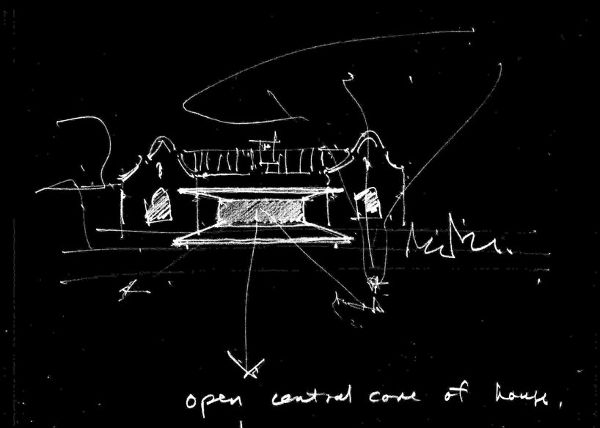 open central core of house.